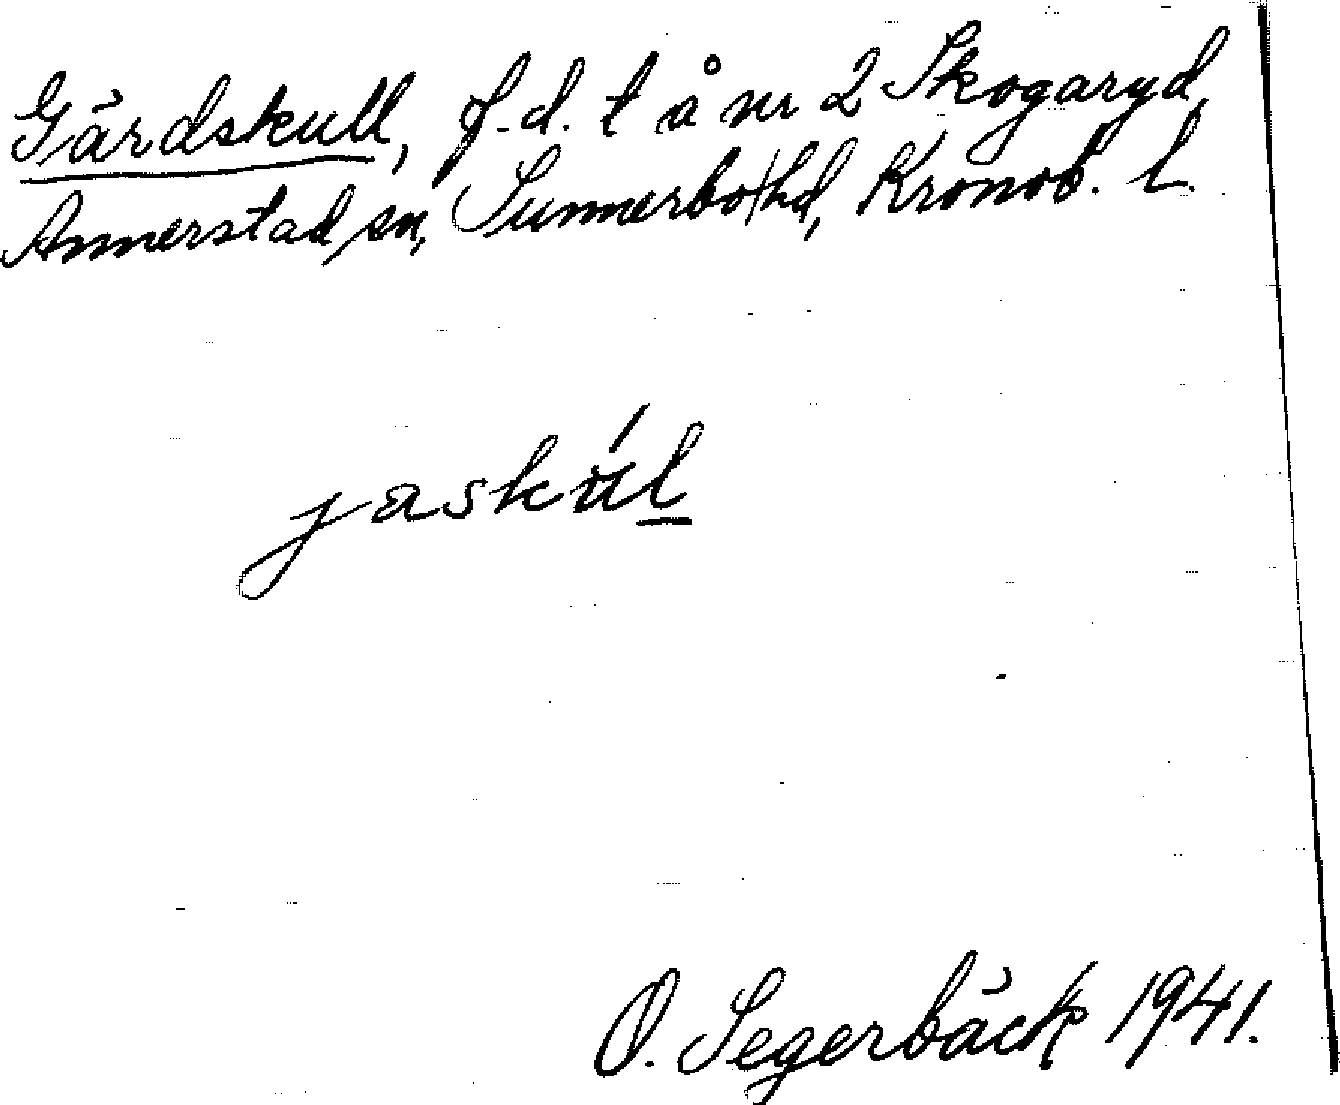 Gärdskull, f.d. t å nr 2 Skogaryd,
Annerstad sn, Sunnerbo hd, Kronob. l.
jaskúl
O. Segerbäck 1941.